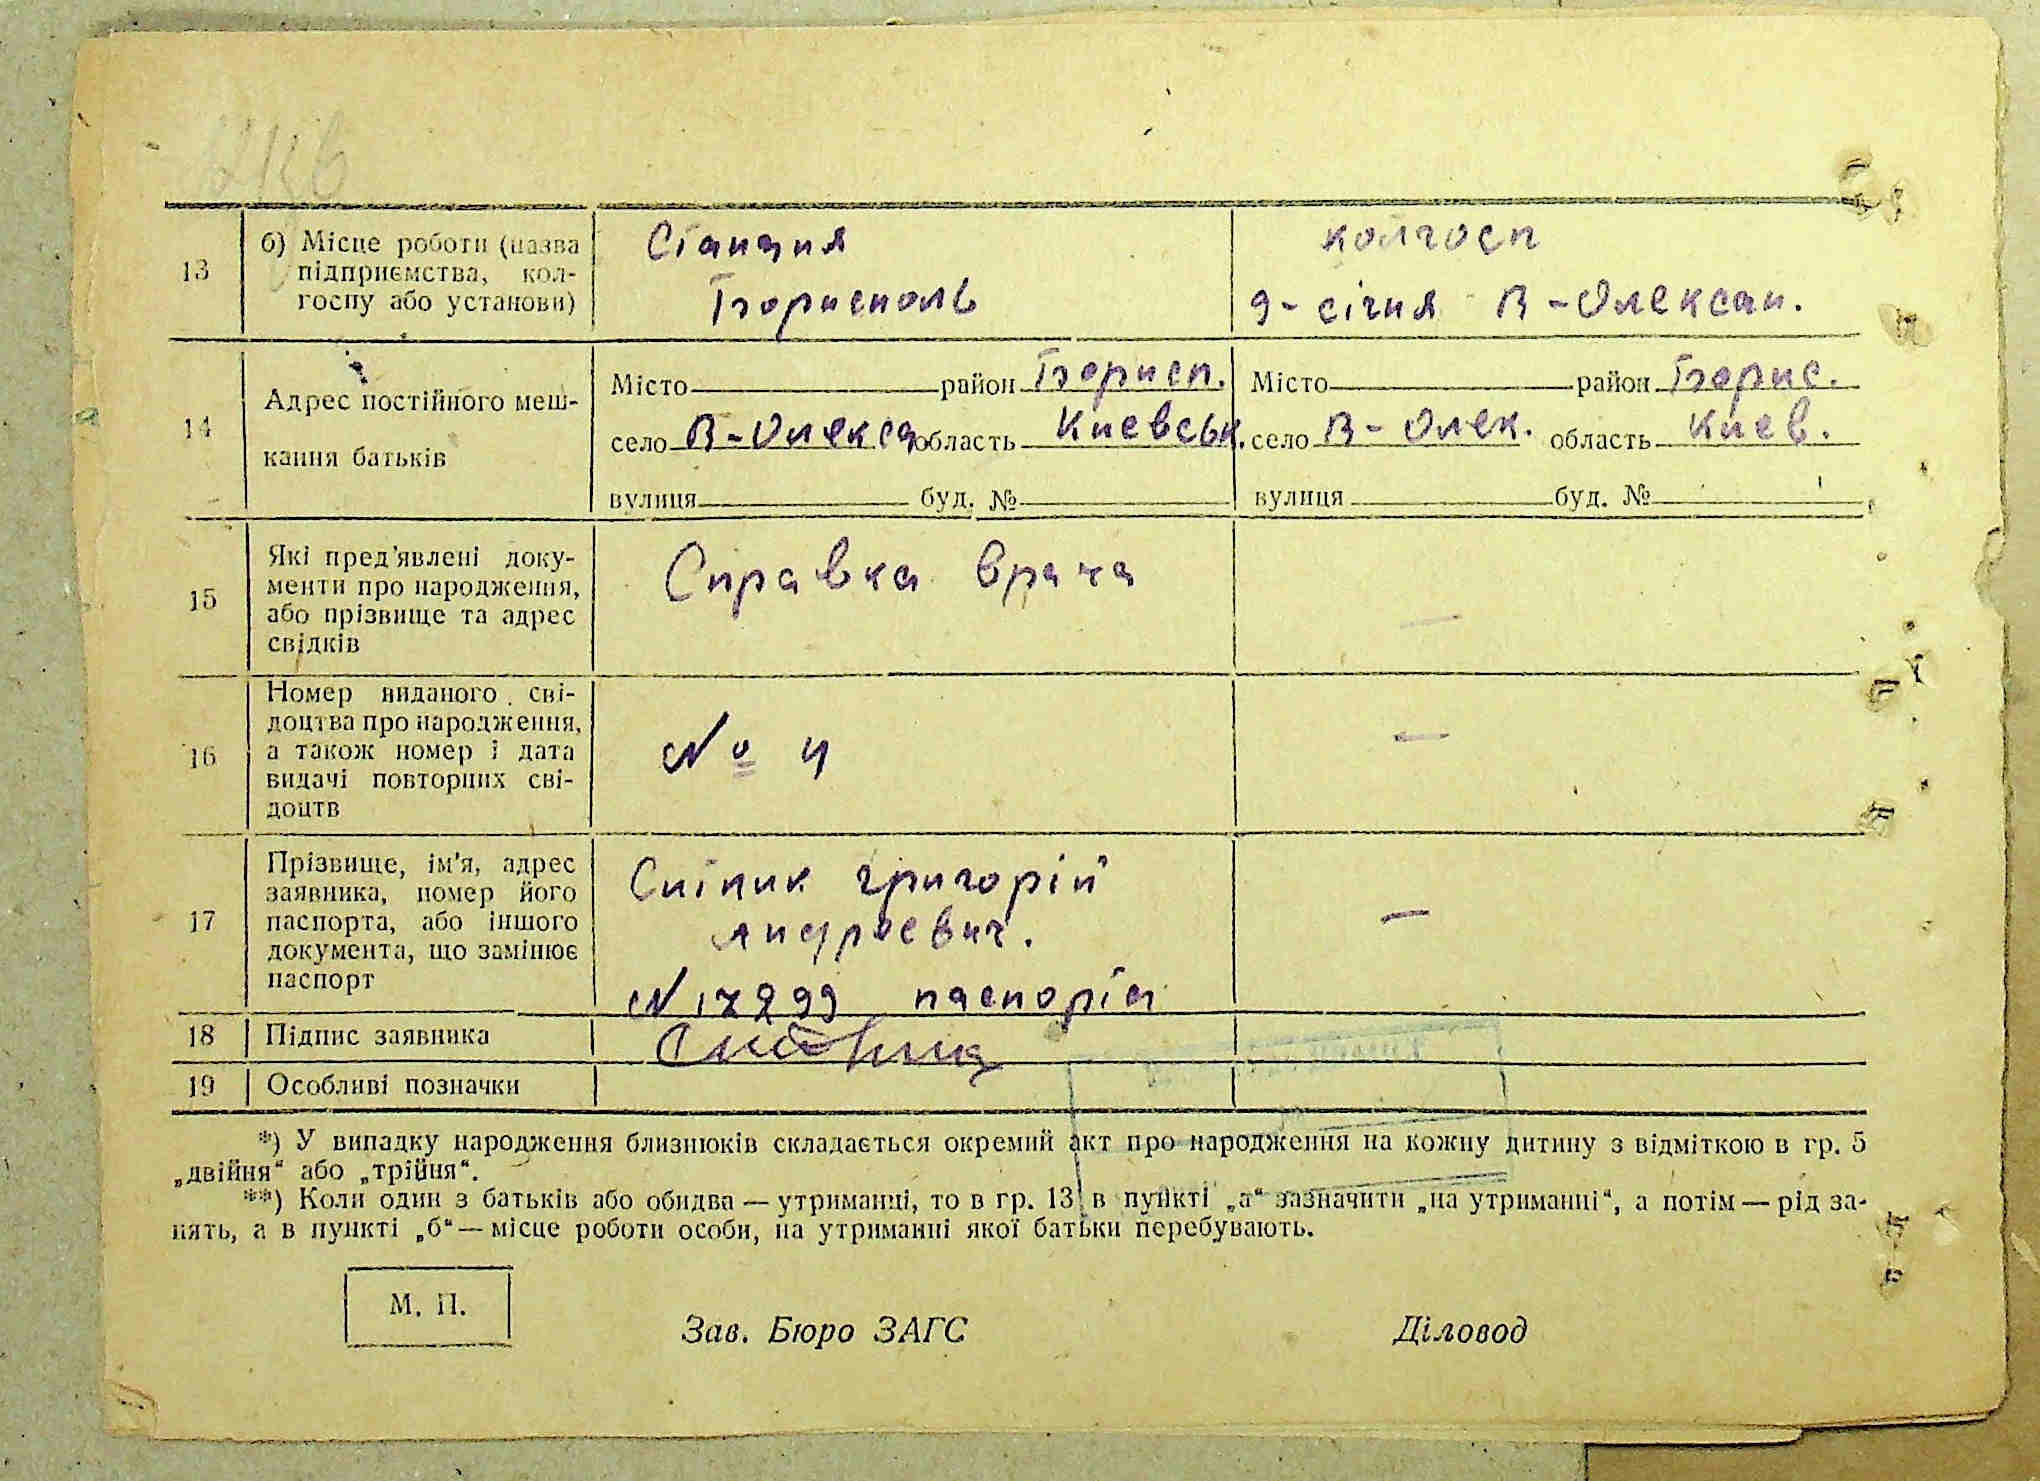 13
б) Місце роботи (назва
підприємства, кол-
госпу або установи)
Станция
Борисполь
колгосп
9-січня В-Олексан.
14
Адрес постійного меш-
кання батьків
Місто район Борисп.
село В-Олекса область Киевськ.
вулиця буд. №
Місто район Борис.
село В-Олек. область Киев.
вулиця буд. №
15
Які пред'явлені доку-
менти про народження,
або прізвище та адрес
свідків
Справка врача
—
16
Номер виданого сві-
доцтва про народження,
а також номер і дата
видачі повторних сві-
доцтв
№ 4
—
17
Прізвище, ім'я, адрес
заявника, номер його
паспорта, або іншого
документа, що замінює
паспорт
григорій
Андреевич.
паспорта
—
18
Підпис заявника
19
Особливі позначки
*) У випадку народження близнюків складається окремий акт про народження на кожну дитину з відміткою в гр. 5
„двійня“ або „трійня“.
**) Коли один з батьків або обидва — утриманці, то в гр. 13 в пункті „а“ зазначити „на утриманні“, а потім — рід за-
нять, а в пункті „б“ — місце роботи особи, на утриманні якої батьки перебувають.
М. П.
Зав. Бюро ЗАГС
Діловод